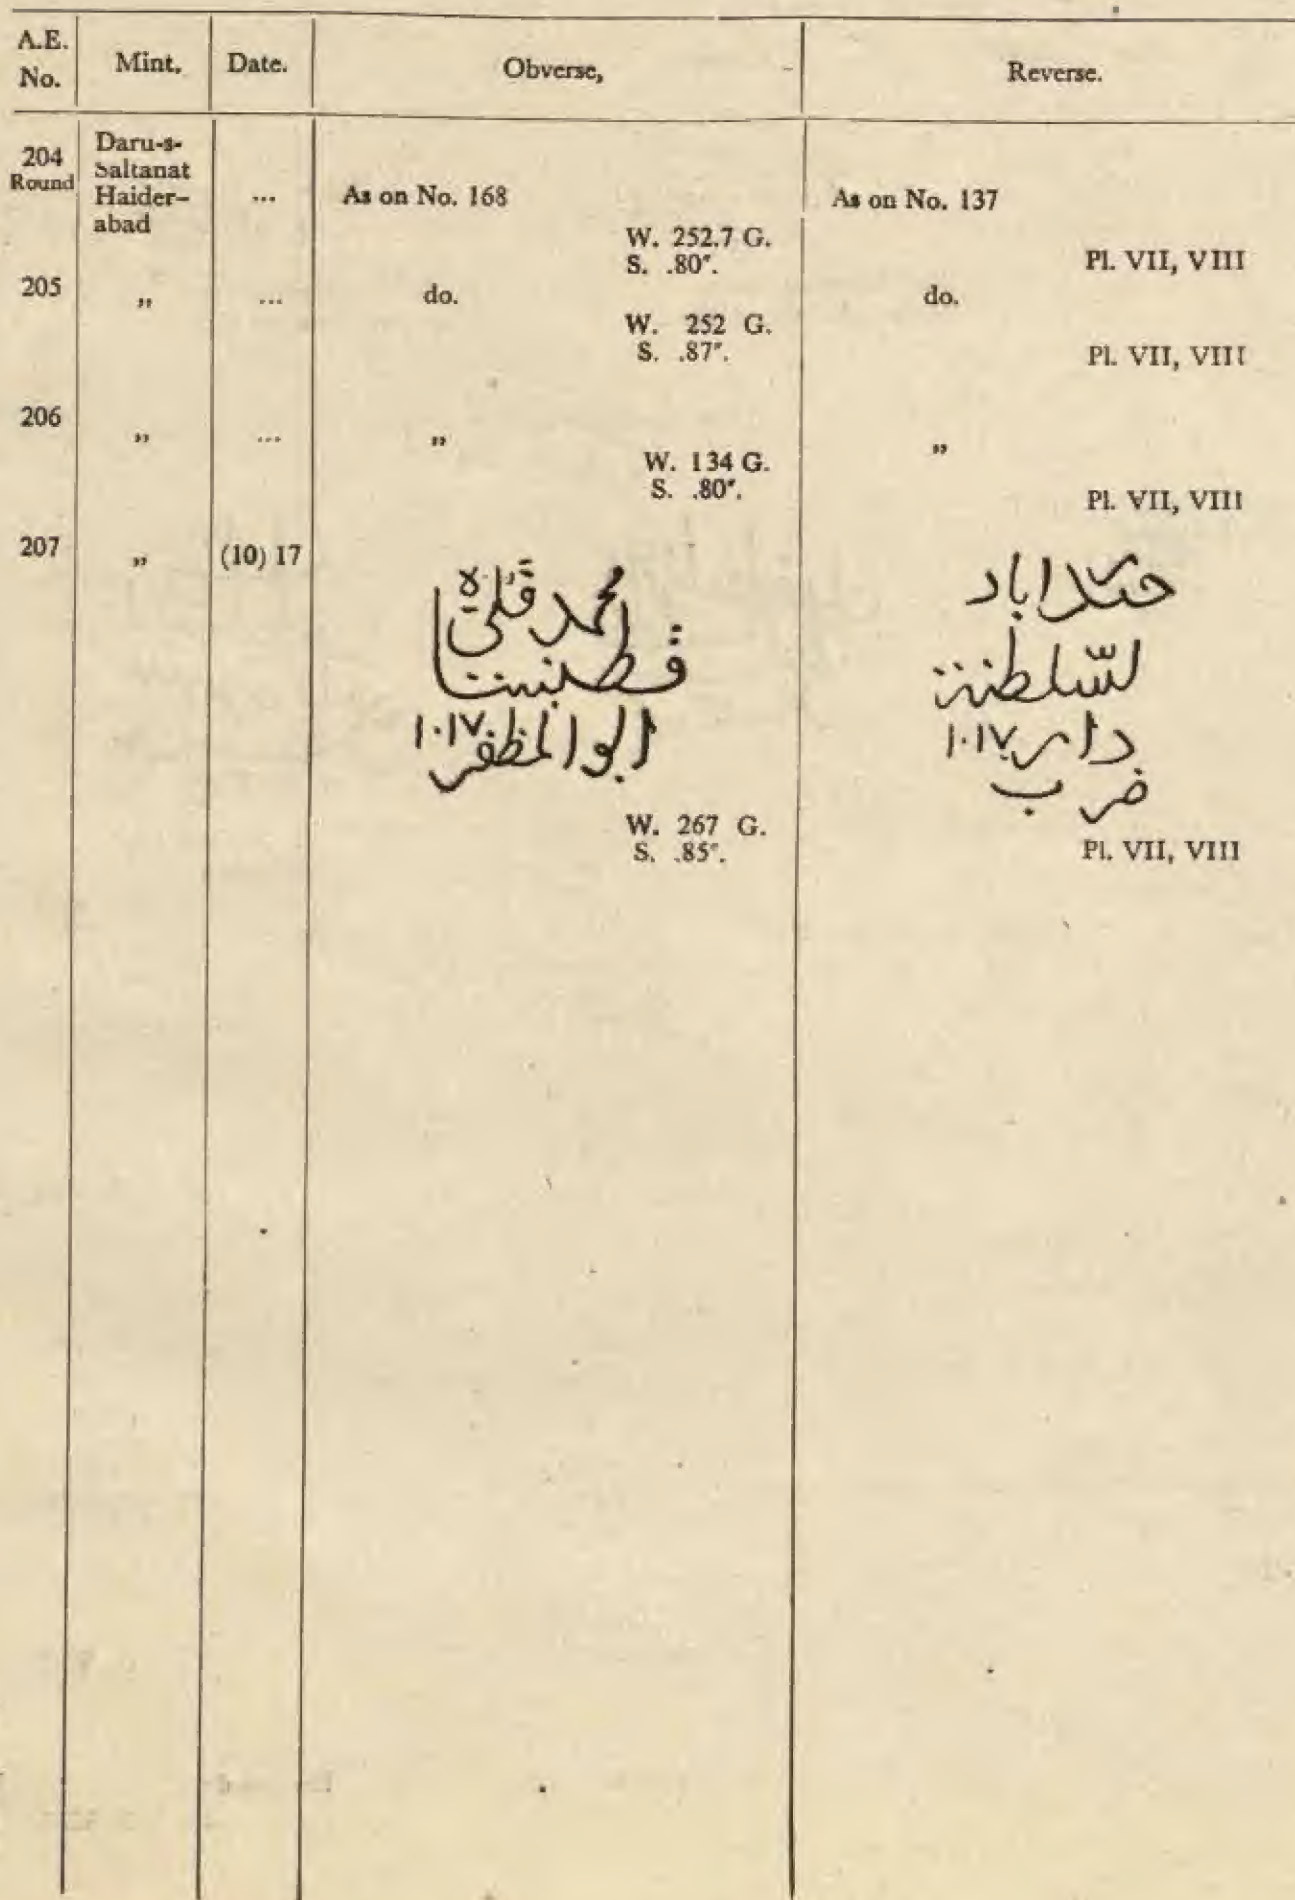 A.E. No. Mint. Date. Obverse, Reverse.
204 Round Daru-s-Saltanat Haider-abad ... As on No. 168 As on No. 137
W. 252.7 G.
S. .80". Pl. VII, VIII
205 " ... do. do.
W. 252 G.
S. .87". Pl. VII, VIII
206 " ... " "
W. 134 G.
S. .80". Pl. VII, VIII
207 " (10) 17
محمد قلی ہ
قطبشا
ابو المظفر ۱۰۱۷
W. 267 G.
S. .85".
حیدراباد
لسّلطنة
دار ۱۰۱۷
ضرب
Pl. VII, VIII